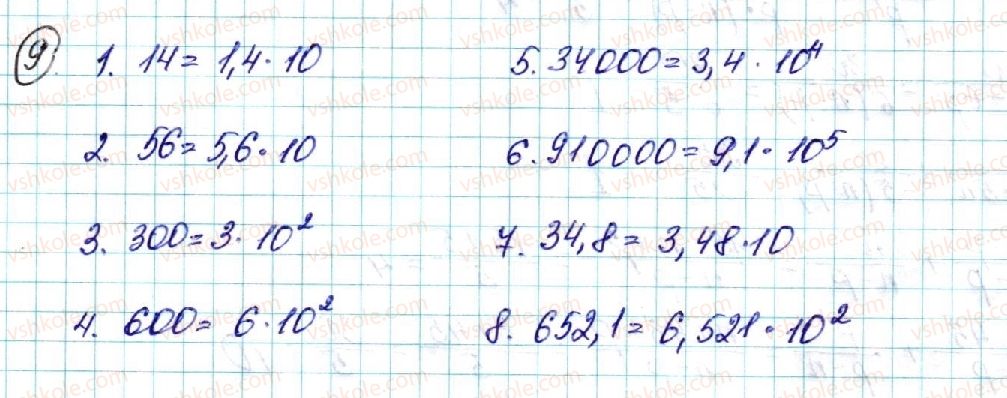 9. 1. 14 = 1,4 · 10
2. 56 = 5,6 · 10
3. 300 = 3 · 10²
4. 600 = 6 · 10²
5. 34000 = 3,4 · 10⁴
6. 910000 = 9,1 · 10⁵
7. 34,8 = 3,48 · 10
8. 652,1 = 6,521 · 10²
vshkole.com